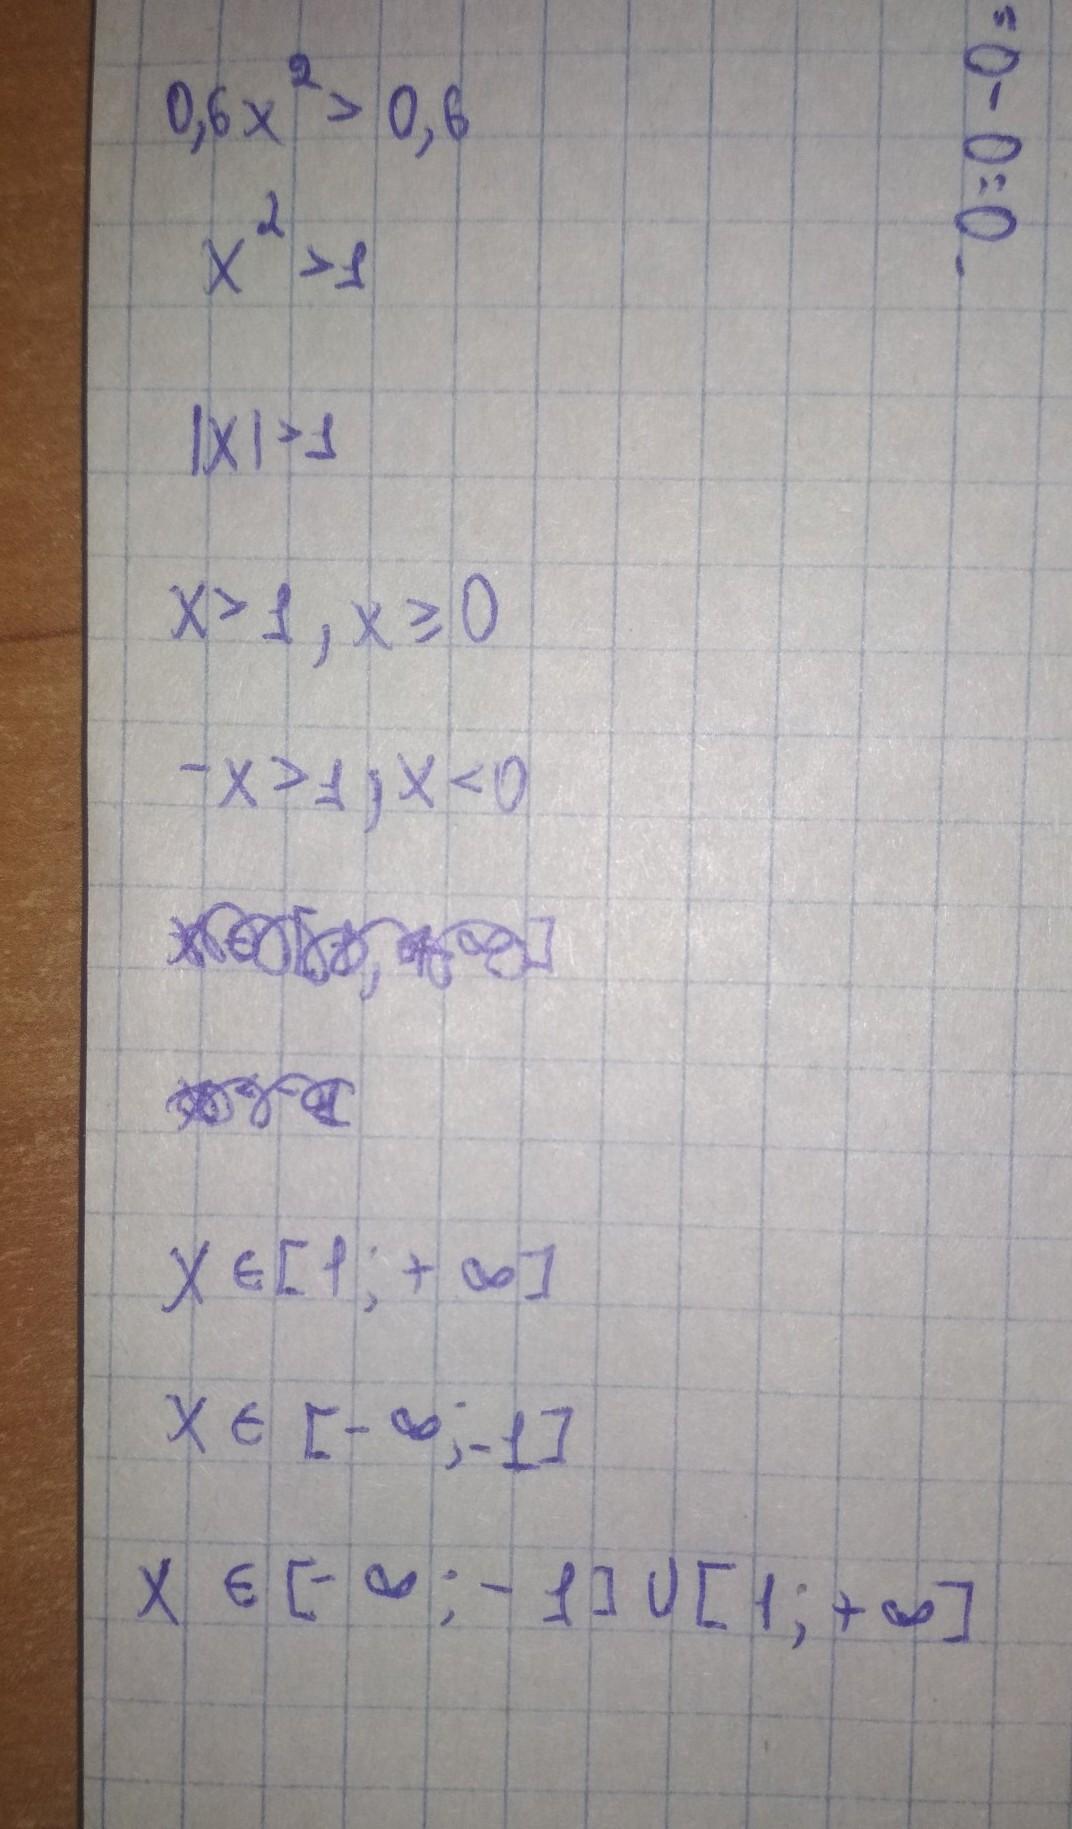 0,6x² > 0,6
x² > 1
|x| > 1
x > 1, x ≥ 0
-x > 1, x < 0
x ∈ [1; + ∞]
x ∈ [- ∞; -1]
x ∈ [- ∞; - 1] ∪ [1; + ∞]
= 0 - 0 = 0.